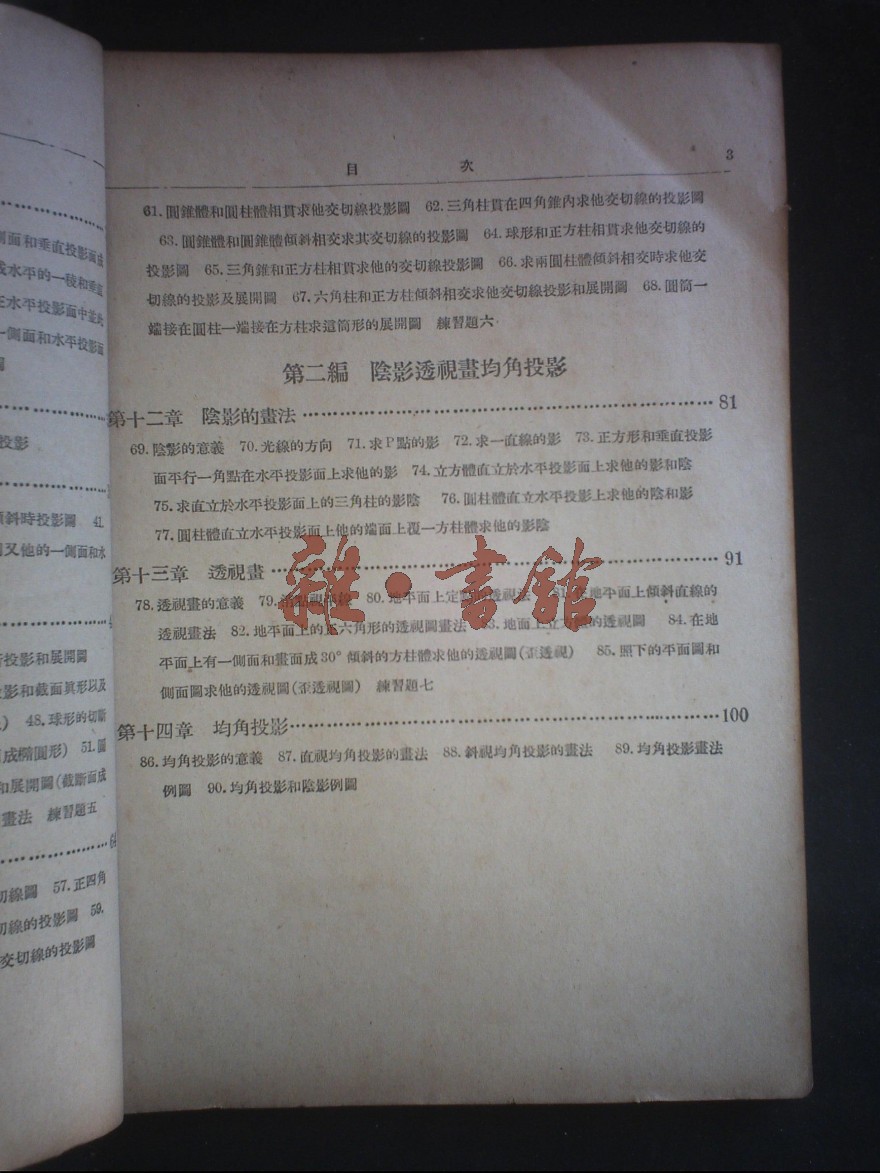 側面和垂直投影面成
或水平的一稜和垂直
在水平投影面中並此
一側面和水平投影面
圖
投影
傾斜時投影圖 41.
又他的一側面和水
投影和展開圖
影和截面眞形以及
) 48.球形的切斷
成橢圓形) 51.圓
和展開圖(截斷面成
畫法 練習題五
切線圖 57.正四角
切線的投影圖 59.
交切線的投影圖
目 次 3
61.圓錐體和圓柱體相貫求他交切線投影圖 62.三角柱貫在四角錐內求他交切線的投影圖
63.圓錐體和圓錐體傾斜相交求其交切線的投影圖 64.球形和正方柱相貫求他交切線的
投影圖 65.三角錐和正方柱相貫求他的交切線投影圖 66.求兩圓柱體傾斜相交時求他交
切線的投影及展開圖 67.六角柱和正方柱傾斜相交求他交切線投影和展開圖 68.圓筒一
端接在圓柱一端接在方柱求這筒形的展開圖 練習題六
第二編 陰影透視畫均角投影
第十二章 陰影的畫法 81
69.陰影的意義 70.光線的方向 71.求P點的影 72.求一直線的影 73.正方形和垂直投影
面平行一角點在水平投影面上求他的影 74.立方體直立於水平投影面上求他的影和陰
75.求直立於水平投影面上的三角柱的影陰 76.圓柱體直立水平投影上求他的陰和影
77.圓柱體直立水平投影面上他的端面上覆一方柱體求他的影陰
第十三章 透視畫 91
78.透視畫的意義 79. 80.地平面上定 的透視法 81.在地平面上傾斜直線的
透視畫法 82.地平面上的正六角形的透視圖畫法 83.地面上立方體的透視圖 84.在地
平面上有一側面和畫面成30°傾斜的方柱體求他的透視圖(歪透視) 85.照下的平面圖和
側面圖求他的透視圖(歪透視圖) 練習題七
第十四章 均角投影 100
86.均角投影的意義 87.直視均角投影的畫法 88.斜視均角投影的畫法 89.均角投影畫法
例圖 90.均角投影和陰影例圖
雜·書館